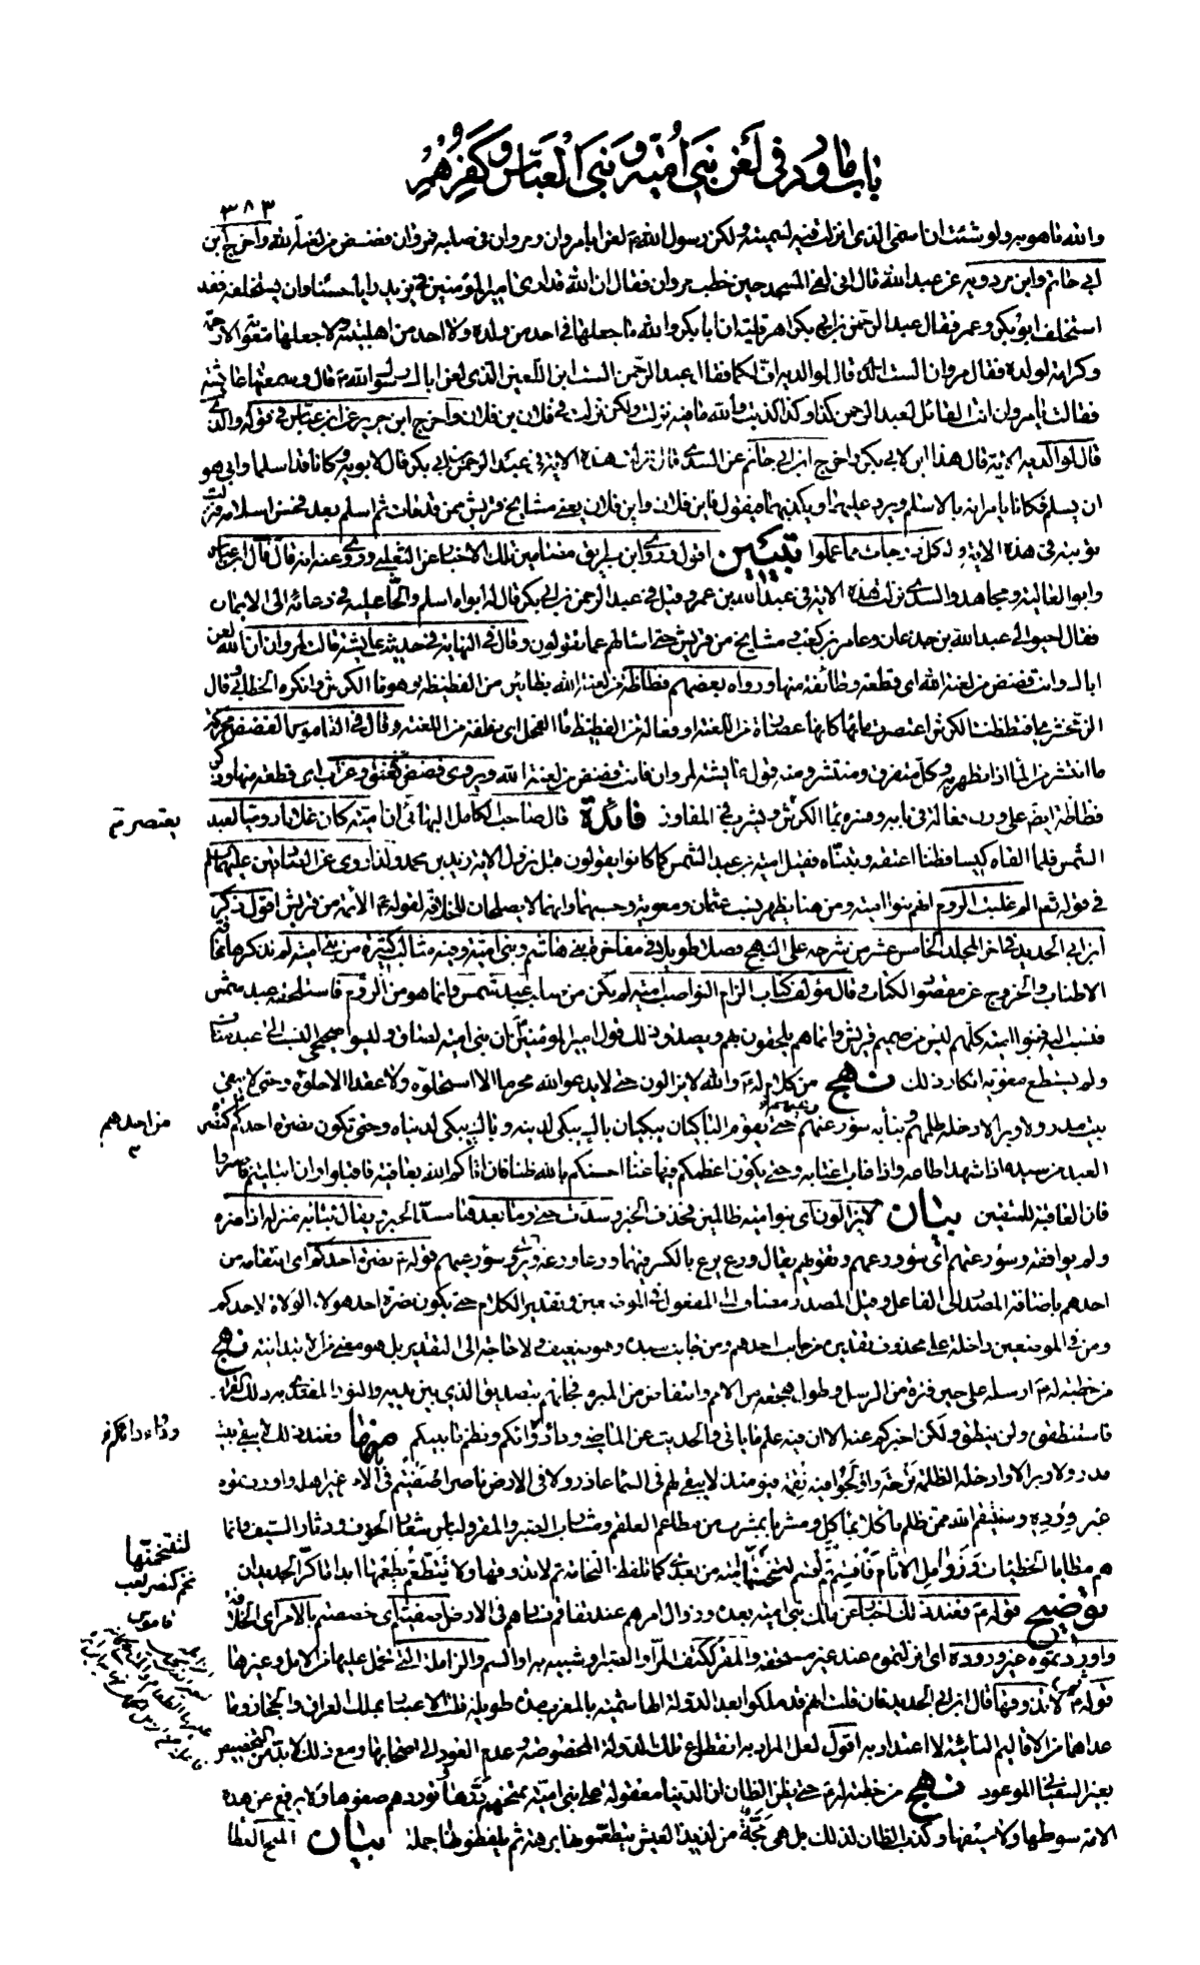 باب ما ورد في لعن بني أمية وبني العباس وكفرهم
٣٨٣
والله ما هو به ولو شئت ان اسمي الذي انزلت فيه لسميته ولكن رسول الله لعن ابا مروان ومروان في صلبه فمروان فضض من لعنة الله واخرج ابن
ابي حاتم وابن مردويه عن عبد الله قال اني لفي المسجد حين خطب مروان فقال ان الله قد ارى امير المؤمنين في يزيد رايا حسنا وان يستخلفه فقد
استخلف ابو بكر وعمر فقال عبد الرحمن بن ابي بكر اهرقلية ان ابا بكر والله ما جعلها في احد من ولده ولا احد من اهل بيته ولا جعلها معوية الا رحمة
وكرامة لولده فقال مروان الست الذي قال لوالديه اف لكما فقال عبد الرحمن الست ابن اللعين الذي لعن اباك رسول الله قال وسمعتها عايشة
فقالت يا مروان انت القائل لعبد الرحمن كذا وكذا كذبت والله ما فيه نزلت ولكن نزلت في فلان بن فلان واخرج ابن جرير عن ابن عباس في قوله والذي
قال لوالديه الاية قال هذا ابن لابي بكر واخرج ابن ابي حاتم عن السدي قال نزلت هذه الاية في عبد الرحمن بن ابي بكر قال لابويه وكانا قد اسلما وابى هو
ان يسلم فكانا يامرانه بالاسلام ويرد عليهما ويكذبهما فيقول فاين فلان واين فلان يعني مشايخ قريش ممن قد مات ثم اسلم بعد فحسن اسلامه فنزلت
توبته في هذه الاية ولكل درجات مما عملوا تبيين اقول روى ابن بطريق مضامين تلك الاخبار عن الثعلبي وروى عنه انه قال قال ابن عباس
وابو العالية ومجاهد والسدي نزلت هذه الاية في عبد الله بن عمر وقيل في عبد الرحمن بن ابي بكر قال له ابواه اسلم والحا عليه في دعائه الى الايمان
فقال احيوا لي عبد الله بن جدعان وعامر بن كعب ومشايخ من قريش حتى اسالهم عما يقولون وقال في النهاية في حديث عايشة قالت لمروان ان الله لعن
اباك وانت فضض من لعنة الله اي قطعة وطائفة منها ورواه بعضهم فظاظة من لعنة الله بظائين من الفظيظ وهو ماء الكرش وانكره الخطابي قال
الزمخشري افتظظت الكرش اعتصرت ماءها كانها عصارة من اللعنة او فعالة من الفظيظ ماء الفحل اي نطفة من اللعنة وقال في القاموس الفضض محركة
ما انتشر من الماء اذا تطهر به وكل متفرق ومنتشر ومنه قول عايشة لمروان فانت فضض من لعنة الله ويروى فضض كعنق وغراب اي قطعة منها
فائدة قال صاحب الكامل البهائي ان امية كان غلاما روميا لعبد
يعتصر ثم
الشمس فلما القاه كيسا فطنا اعتقه وتبناه فقيل امية بن عبد الشمس كما كانوا يقولون قبل نزول الاية زيد بن محمد ولذا روي عن الصادقين عليهما السلم
في قوله تعم الم غلبت الروم انهم بنوا امية ومن هنا يظهر نسب عثمان ومعوية وحسبهما وانهما لا يصلحان للخلافة لقوله الائمة من قريش اقول ذكر
ابن ابي الحديد في اخر المجلد الخامس عشر من شرحه على النهج فصلا طويلا في مفاخرة بني هاشم وبني امية وفيه مثالب كثيرة من بني امية لم نذكرها مخافة
الاطناب والخروج عن مقصود الكتاب وقال مؤلف كتاب الزام النواصب امية لم يكن من صلب عبد شمس وانما هو من الروم فاستلحقه عبد شمس
فنسب اليه فبنوا امية كلهم ليس من صميم قريش وانما هم يلحقون بهم ويصدق ذلك قول امير المؤمنين ان بني امية لصاق وليسوا صحيحي النسب الى عبد مناف
ولم يستطع معوية انكار ذلك نهج من كلام له والله لا يزالون حتى لا يدعوا لله محرما الا استحلوه ولا عقدا الا حلوه وحتى لا يبقى
بيت مدر ولا وبر الا دخله ظلمهم ونبا به سوء رعيهم حتى يقوم الباكيان يبكيان باك يبكي لدينه وباك يبكي لدنياه وحتى تكون نصرة احدكم كنصرة
من احدهم
العبد من سيده اذا شهد اطاعه واذا غاب اغتابه وحتى يكون اعظمكم فيها عناء احسنكم بالله ظنا فان اتاكم الله بعافية فاقبلوا وان ابتليتم فاصبروا
فان العاقبة للمتقين بيان لا يزالون اي بنو امية ظالمين فحذف الخبر وسدت حتى وما بعدها مسد الخبر ويقال نبا به منزله اذا ضره
ولم يوافقه وسوء رعيهم اي سوء ورعهم وتقويهم يقال ورع يرع بالكسر فيهما ورعا ورعة ويروى سوء رعيهم قوله نصرة احدكم اي انتقامه من
احدهم باضافة المصدر الى الفاعل وقيل المصدر مضاف الى المفعول في الموضعين وتقدير الكلام حتى يكون نصرة احد هؤلاء الولاة لاحدكم
ومن في الموضعين داخلة على محذوف تقديره من جانب احدهم ومن جانب سيده وهو ضعيف ولا حاجة الى التقدير بل هو معنى من الابتدائية نهج
من خطبة له ارسله على حين فترة من الرسل وطول هجعة من الامم وانتقاض من المبرم فجاءهم بتصديق الذي بين يديه والنور المقتدى به ذلك القران
فاستنطقوه ولن ينطق ولكن اخبركم عنه الا ان فيه علم ما ياتي والحديث عن الماضي ودواء دائكم ونظم ما بينكم منها فعند ذلك لا يبقى بيت
ودواء دائكم
مدر ولا وبر الا وادخله الظلمة ترحة واولجوا فيه نقمة فيومئذ لا يبقى لهم في السماء عاذر ولا في الارض ناصر اصفيتم بالامر غير اهله واوردتموه
غير ورده وسينتقم الله ممن ظلم ماكلا بماكل ومشربا بمشرب من مطاعم العلقم ومشارب الصبر والمقر ولباس شعار الخوف ودثار السيف وانما
هم مطايا الخطيئات وزوامل الاثام فاقسم ثم اقسم لتنخمنها امية من بعدي كما تلفظ النخامة ثم لا تذوقها ولا تتطعم بطعمها ابدا ما كر الجديدان
لتنخمنها
نخم كنصر لعب
قاموس
توضيح قوله فعند ذلك اخبار عن ملك بني امية بعده وزوال امرهم عند تفاقم فسادهم في الارض اصفيتم اي خصصتم بالامر اي الخلافة
واوردتموه غير ورده اي انزلتموه عند غير مستحقه والمقر ككتف المر او الصبر او شبيه به او السم والزاملة التي تحمل عليها من الابل وغيرها
قوله ثم لا تذوقها قال ابن ابي الحديد فان قلت انهم قد ملكوا بعد الدولة الهاشمية بالمغرب مدة طويلة قلت الاعتبار بملك العراق والحجاز وما
عداهما من الاقاليم النائية لا اعتداد به اقول لعل المراد به انقطاع تلك الدولة المخصوصة وعدم العود الى اصحابها ومع ذلك لا بد من التخصيص
بغير السفياني الموعود نهج من خطبة له حتى يظن الظان ان الدنيا معقولة على بني امية تمنحهم درها وتوردهم صفوها ولا يرفع عن هذه
الامة سوطها ولا سيفها وكذب الظان لذلك بل هي مجة من لذيذ العيش يتطعمونها برهة ثم يلفظونها جملة بيان المنح العطاء